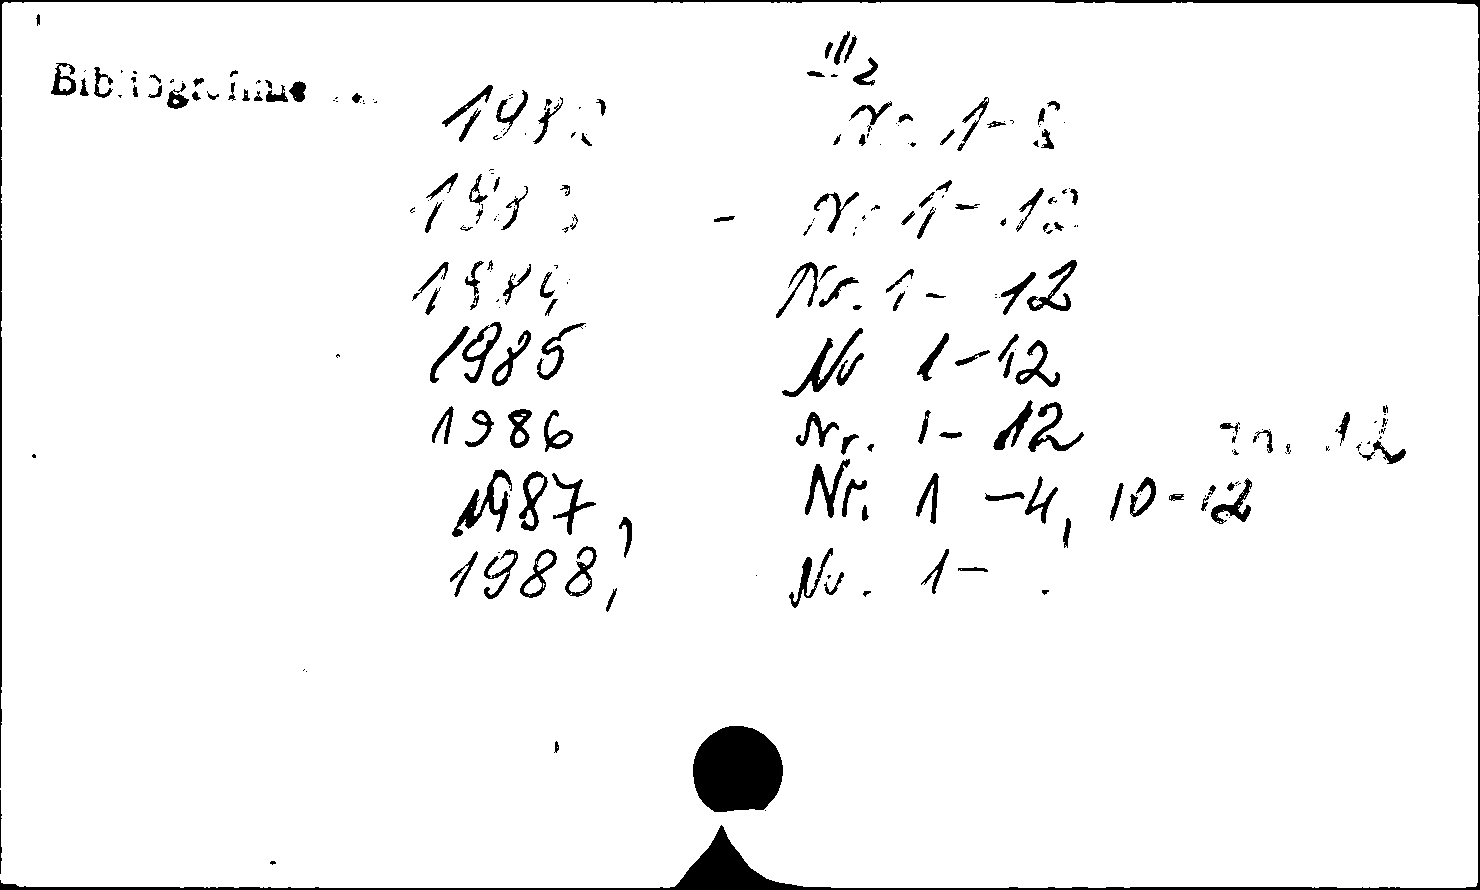 III 2
1982 Nr. 1-8
1983 - Nr 1-12
1984 Nr. 1- 12
1985 Nr 1-12
1986 Nr. 1- 12 12
1987, Nr. 1 -4, 10-12
1988, Nr. 1-